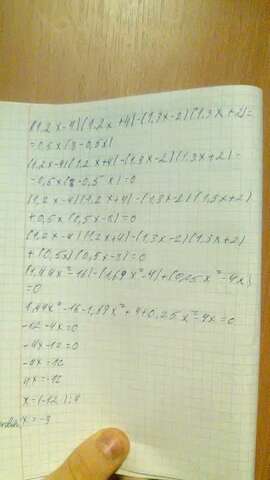 (1,2x-4)(1,2x+4)-(1,3x-2)(1,3x+2)=
=0,5x(8-0,5x)
(1,2x-4)(1,2x+4)-(1,3x-2)(1,3x+2)-
-0,5x(8-0,5x)=0
(1,2x-4)(1,2x+4)-(1,3x-2)(1,3x+2)
+0,5x(0,5x-8)=0
(1,2x-4)(1,2x+4)-(1,3x-2)(1,3x+2)
+(0,5x)(0,5x-8)=0
(1,44x²-16)-(1,69x²-4)+(0,25x²-4x)
=0
1,44x²-16-1,69x²+4+0,25x²-4x=0
-12-4x=0
-4x-12=0
-4x=12
4x=-12
x=(-12):4
x=-3